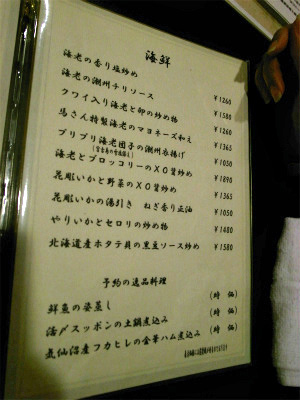 海鮮
海老の香り塩炒め ¥1260
海老の潮州チリソース ¥1580
クワイ入り海老と卵の炒め物 ¥1260
馬さん特製海老のマヨネーズ和え ¥1365
プリプリ海老団子の潮州衣揚げ ¥1050
海老とブロッコリーのXO醤炒め ¥1890
花彫いかと野菜のXO醤炒め ¥1365
花彫いかの湯引き ねぎ香り正油 ¥1050
やりいかとセロリの炒め物 ¥1480
北海道産ホタテ貝の黒豆ソース炒め ¥1580
予約の逸品料理
鮮魚の姿蒸し (時 価)
活〆スッポンの土鍋煮込み (時 価)
気仙沼産フカヒレの金華ハム煮込み (時 価)